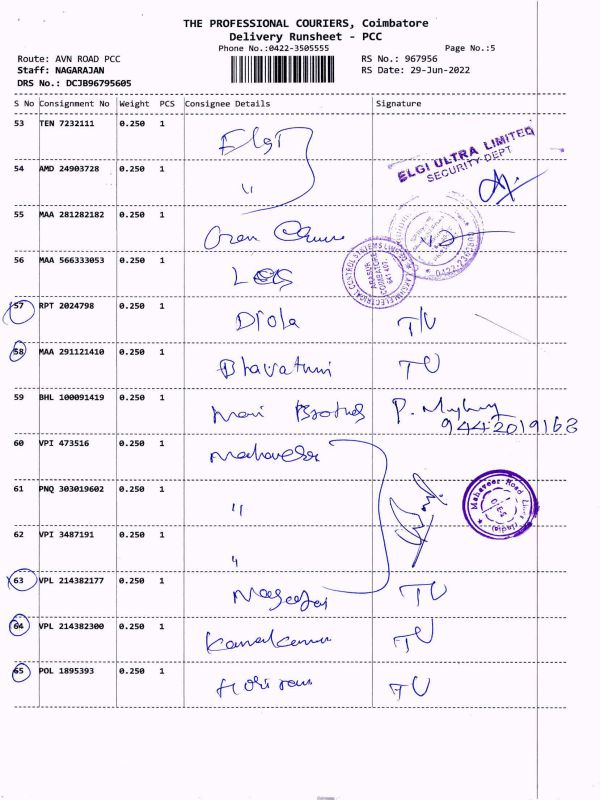 THE PROFESSIONAL COURIERS, Coimbatore
Delivery Runsheet - PCC
Phone No.:0422-3505555 Page No.:5
Route: AVN ROAD PCC RS No.: 967956
Staff: NAGARAJAN RS Date: 29-Jun-2022
DRS No.: DCJB96795605
S No Consignment No Weight PCS Consignee Details Signature
53 TEN 7232111 0.250 1 Elgi
ELGI ULTRA LIMITED
SECURITY DEPT
54 AMD 24903728 0.250 1 "
55 MAA 281282182 0.250 1
56 MAA 566333053 0.250 1 LECS
57 RPT 2024798 0.250 1 Diola TU
58 MAA 291121410 0.250 1 Bhavathini TU
59 BHL 100091419 0.250 1 Mani Brothers P.
9442019168
60 VPI 473516 0.250 1
61 PNQ 303019602 0.250 1 "
Mahaveer Road Lines (India)
62 VPI 3487191 0.250 1 "
63 VPL 214382177 0.250 1 TU
64 VPL 214382300 0.250 1 TU
65 POL 1895393 0.250 1 TU